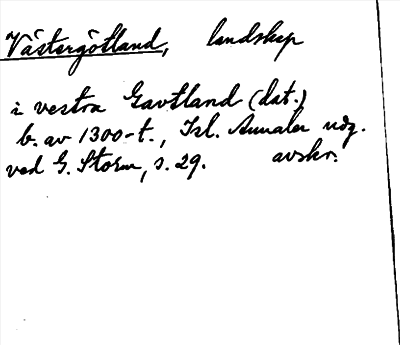 Västergötland, landskap
i vestra Gavtland (dat.)
b. av 1300-t., Isl. Annaler udg.
ved G. Storm, s. 29. avskr.